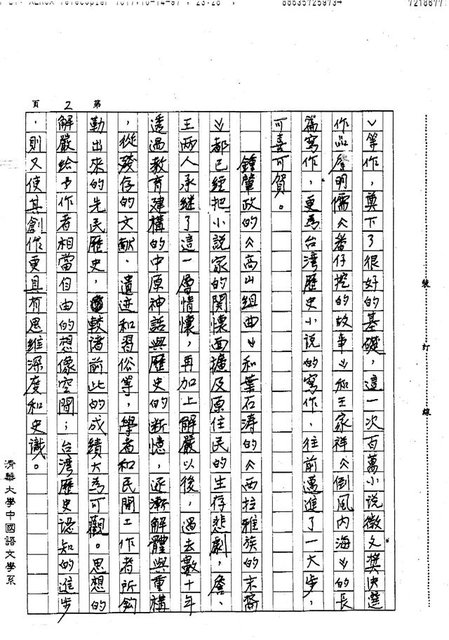 XEROX Telecopier 7017;10-14-97 ; 23:28 ;
88635725973→
7218677
第 2 頁
》等作,奠下了很好的基礎,這一次百萬小說徵文獎決選
作品詹明儒《番仔挖的故事》和王家祥《倒風內海》的長
篇寫作,更為台灣歷史小說的寫作,往前邁進了一大步,
可喜可賀。
鍾肇政的《高山組曲》和葉石濤的《西拉雅族的末裔
》都已經把小說家的關懷面擴及原住民的生存悲劇,詹、
王兩人承繼了這一層情懷,再加上解嚴以後,過去數十年
透過教育建構的中原神話與歷史的斷憶,逐漸解體與重構
,從殘存的文獻、遺迹和習俗等,學者和民間工作者所鈎
勒出來的先民歷史,較諸前此的成績大為可觀。思想的
解嚴給予作者相當自由的想像空間;台灣歷史認知的進步
,則又使其創作更具有思維深度和史識。
裝訂線
清華大學中國語文學系